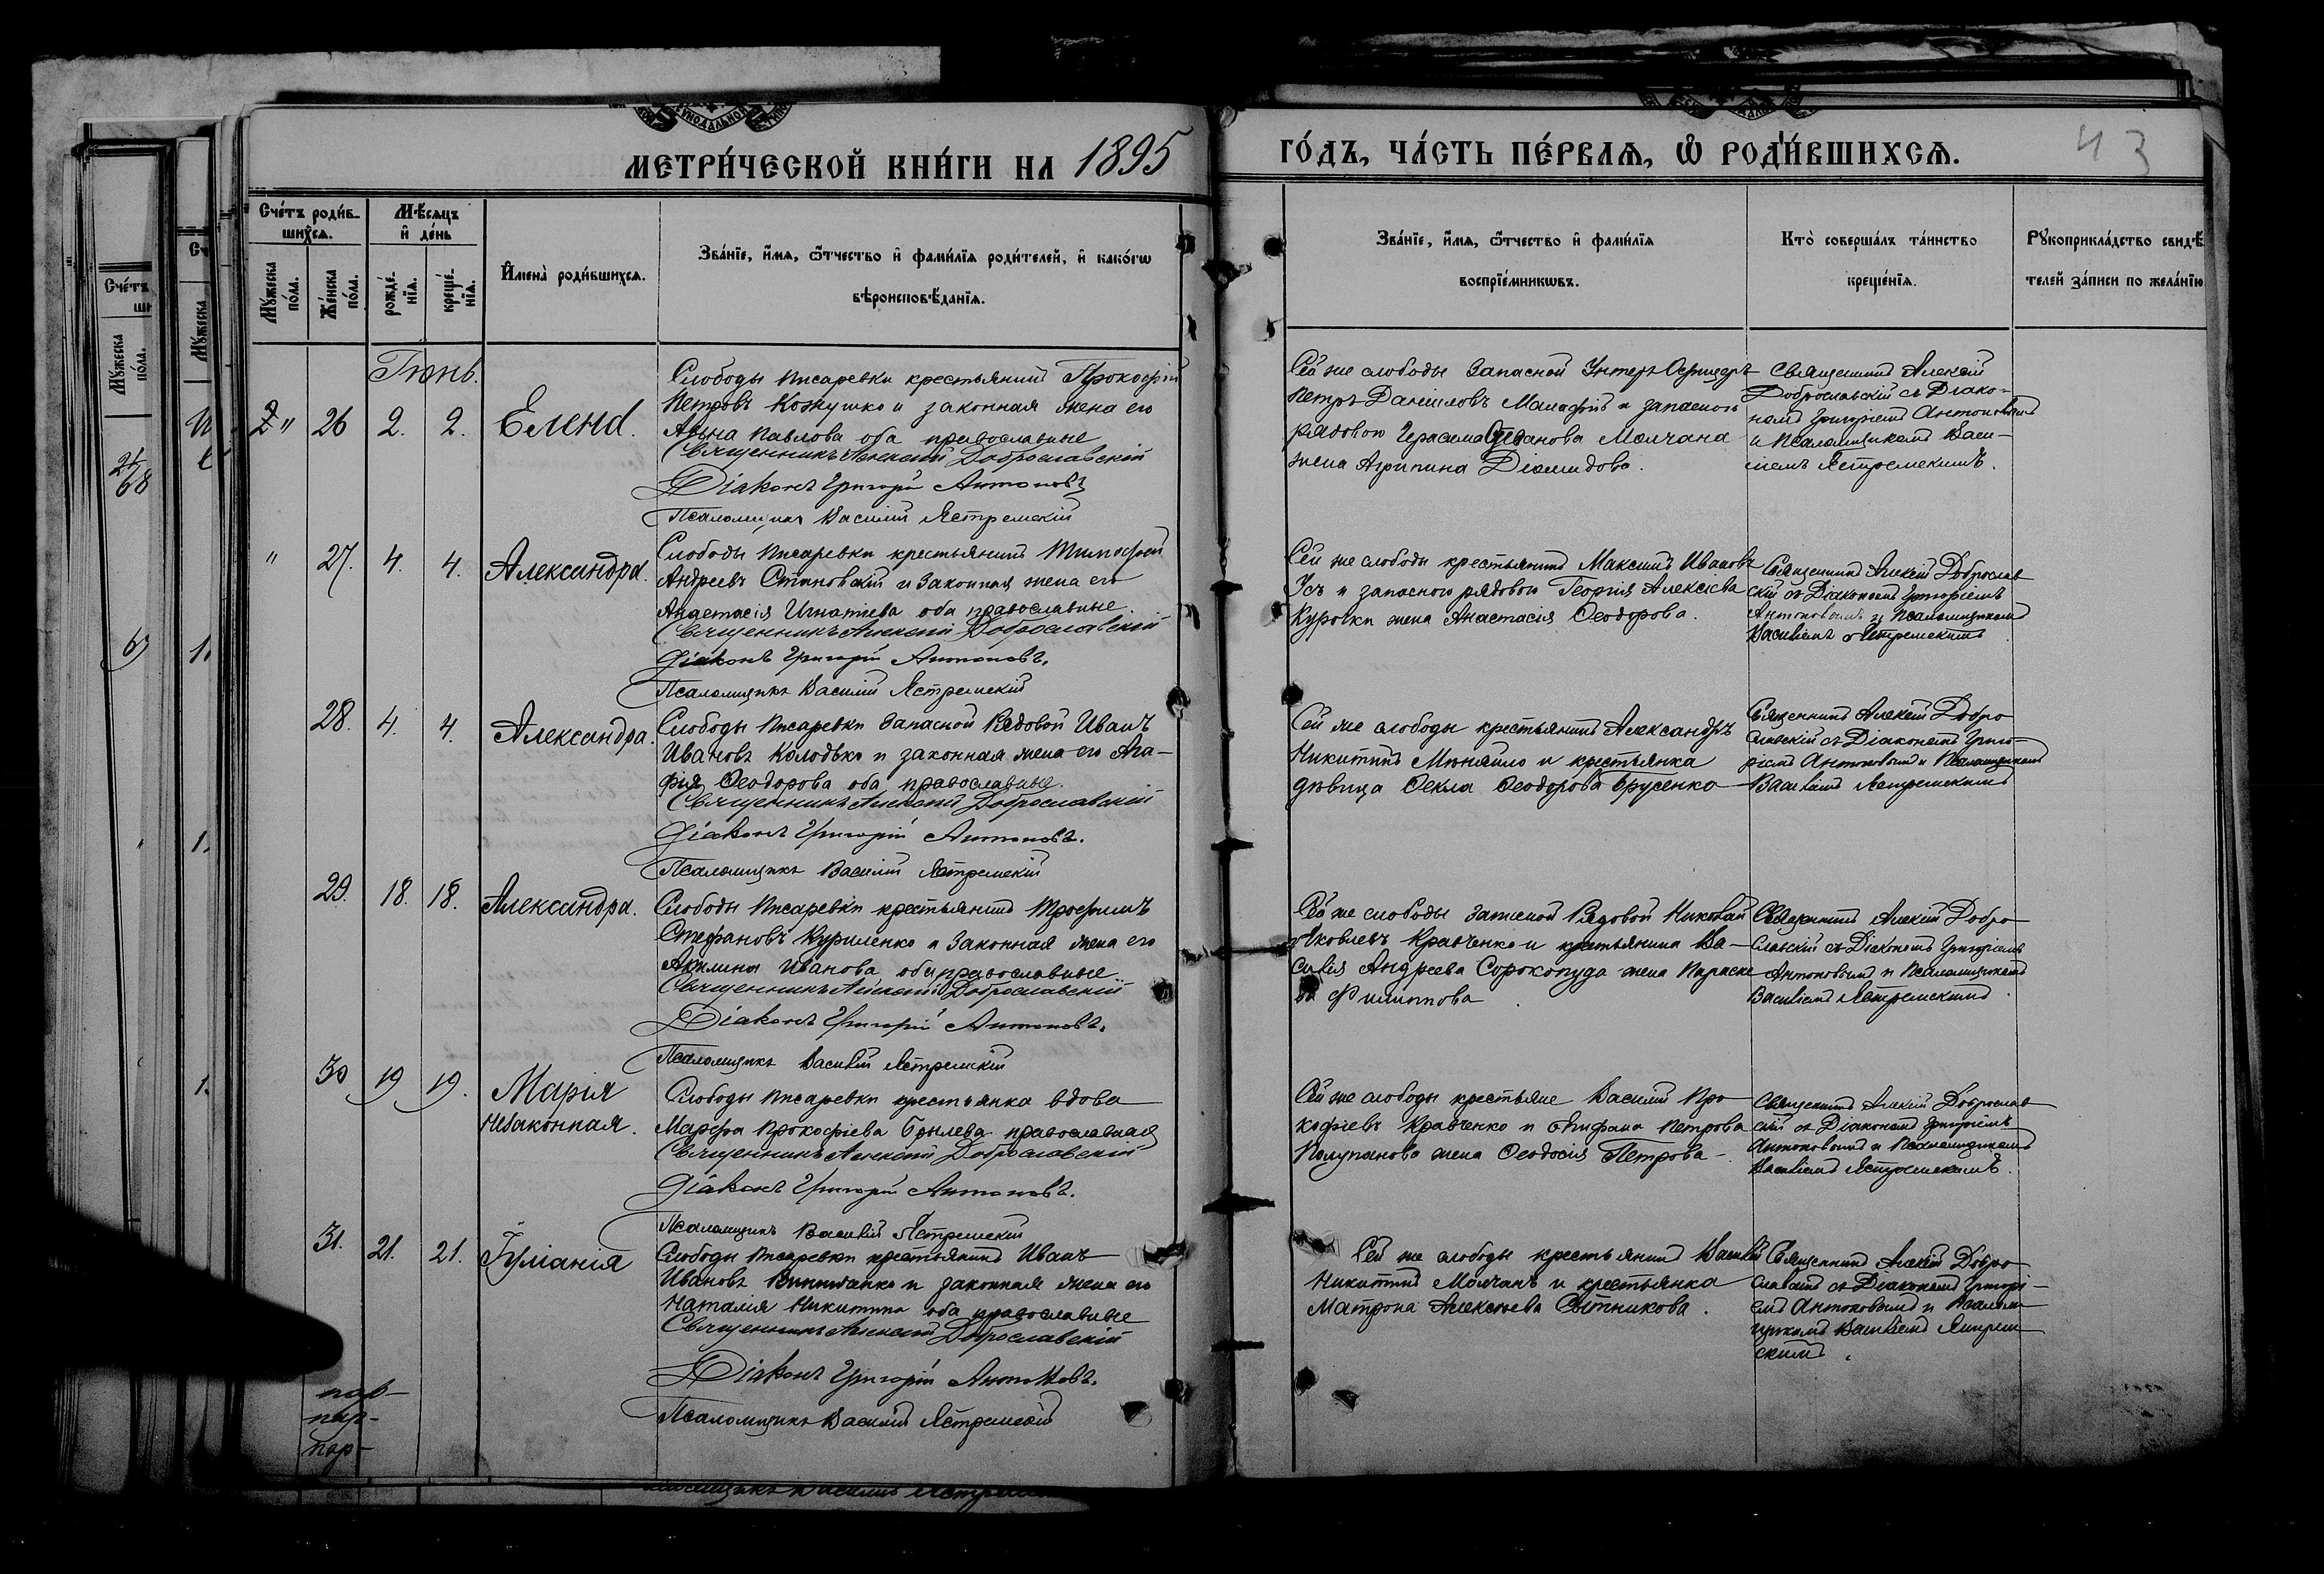 МЕТРИ́ЧЕСКОЙ КНИ́ГИ НА 1895
ГО́ДЪ, ЧА́СТЬ ПЕ́РВАѦ, Ѽ РОДИ́ВШИХСѦ.
43
Сче́тъ роди́в-
шихсѧ.
Мѣ́сѧцъ
и де́нь
Мꙋжеска
по́ла.
Же́нска
по́ла.
рожде́-
нїѧ.
креще́-
нїѧ.
Имена̀ роди́вшихсѧ.
Зва́нїе, и́мѧ, ѻ́тчество и фами́лїѧ роди́телей, и како́гѡ
вѣроисповѣ́данїѧ.
Зва́нїе, и́мѧ, ѻ́тчество и фами́лїѧ
воспрїе́мникѡвъ.
Кто̀ соверша́лъ та́инство
креще́нїѧ.
Рꙋкоприкла́дство свидѣ́-
телей за́писи по жела́нїю
Іюнь.
26 2. 2. Елена.
Слободы Писаревки крестьянинъ Прокофій
Петровъ Кожушко и законная жена его
Анна Павлова оба православные
Священникъ Алексій Доброславскій
Діаконъ Григорій Антоновъ
Псаломщикъ Василій Ястремскій
Сей же слободы Запасной Унтеръ Офицеръ
Петръ Даніиловъ и запаснаго
рядового Герасима Молчана
жена Агрипина Діомидова.
Священникъ Алексій
Доброславскій съ Діако-
номъ Григоріемъ Антоновымъ
и Псаломщикомъ Васи-
ліемъ Ястремскимъ.
" 27. 4. 4. Александра.
Слободы Писаревки крестьянинъ Тимофей
Андреевъ Становскій и законная жена его
Анастасія Игнатіева оба православные.
Священникъ Алексій Доброславскій
Діаконъ Григорій Антоновъ.
Псаломщикъ Василій Ястремскій
Сей же слободы крестьянинъ Максимъ Ивановъ
Усъ и запасного рядового Георгія Алексіева
Курочки жена Анастасія Ѳеодорова.
Священникъ Алексій Доброслав
скій съ Діакономъ Григоріемъ
Антоновымъ и Псаломщикомъ
Василіемъ Ястремскимъ
28. 4. 4. Александра.
Слободы Писаревки Запасной Рядовой Иванъ
Ивановъ Колодько и законная жена его Ага-
фія Ѳеодорова оба православные.
Священникъ Алексій Доброславскій
Діаконъ Григорій Антоновъ.
Псаломщикъ Василій Ястремскій
Сей же слободы крестьянинъ Александръ
Никитинъ Минайло и крестьянка
дѣвица Ѳекла Ѳеодорова Брусенко
Священникъ Алексій Добро
славскій съ Діакономъ Григо-
ріемъ Антоновымъ и Псаломщикомъ
Василіемъ Ястремскимъ
29. 18. 18. Александра.
Слободы Писаревки крестьянинъ Трофимъ
Стефановъ Куриленко и законная жена его
Акилина Иванова оба православные.
Священникъ Алексій Доброславскій
Діаконъ Григорій Антоновъ.
Псаломщикъ Василій Ястремскій
Сей же слободы запасной Рядовой Николай
Яковлевъ Кравченко и крестьянина Ва-
силія Андреева Сорокопуда жена Параске
ва Филиппова
Священникъ Алексій Добро
славскій съ Діакономъ Григоріемъ
Антоновымъ и Псаломщикомъ
Василіемъ Ястремскимъ.
30 19 19. Марія
незаконная.
Слободы Писаревки крестьянка вдова
Марфа Прокофіева православная
Священникъ Алексій Доброславскій
Діаконъ Григорій Антоновъ.
Псаломщикъ Василій Ястремскій
Сей же слободы крестьяне Василій Про
кофіевъ Кравченко и Петрова
жена Ѳеодосія Петрова
Священникъ Алексій Доброслав
скій съ Діакономъ Григоріемъ
Антоновымъ и Псаломщикомъ
Василіемъ Ястремскимъ.
31. 21. 21. Іуліанія
Слободы Писаревки крестьянинъ Иванъ
Ивановъ и законная жена его
Наталія Никитина оба православные
Священникъ Алексій Доброславскій
Діаконъ Григорій Антоновъ.
Псаломщикъ Василій Ястремскій
Сей же слободы крестьянинъ Василій
Никитинъ Молчанъ и крестьянка
Матрона Алексѣева Сытникова.
Священникъ Алексій Добро
славскій съ Діакономъ Григорі-
емъ Антоновымъ и Псалом-
щикомъ Василіемъ Ястрем
скимъ.